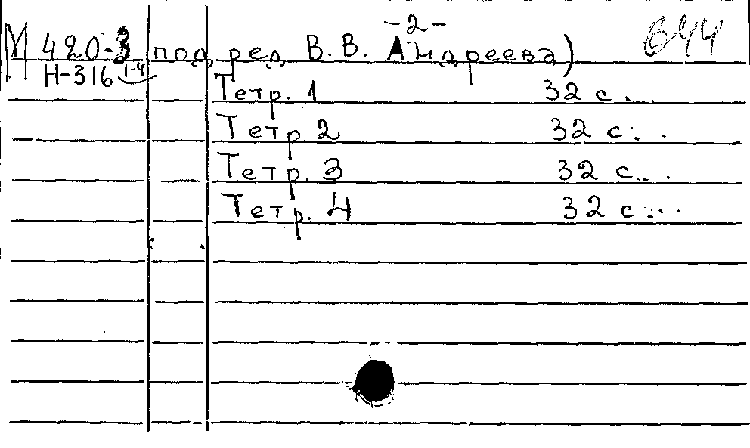 -2-
644
М 420-3 под ред. В. В. Андреева)
Н-316 1-4
Тетр. 1 32 с.
Тетр. 2 32 с.
Тетр. 3 32 с.
Тетр. 4 32 с.